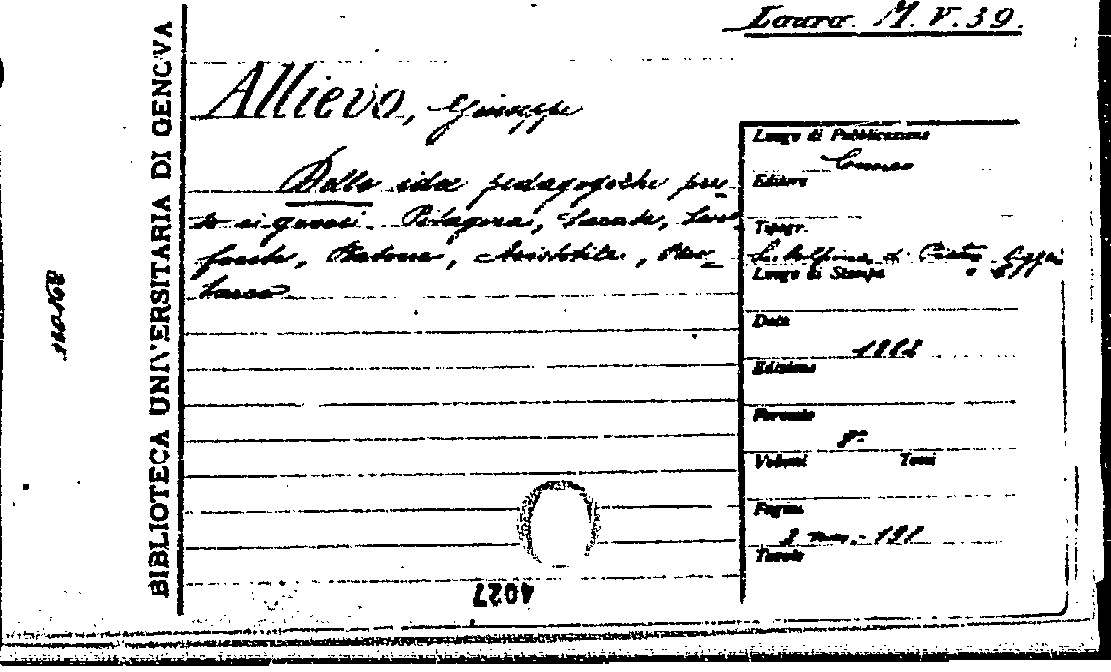 Laura. M. V. 39.
BIBLIOTECA UNIVERSITARIA DI GENOVA
Allievo, Giuseppe
Delle idee pedagogiche pres-
so i greci. Pitagora, Socrate, Seno-
fonte, Platone, Aristotile, Plu-
tarco
Luogo di Pubblicazione
Cuneo
Editore
Tipogr.
Subalpina di Pietro
Luogo di Stampa
Data
Edizione
Formato
8°
Volumi Tomi
Pagine
Tavole
4027